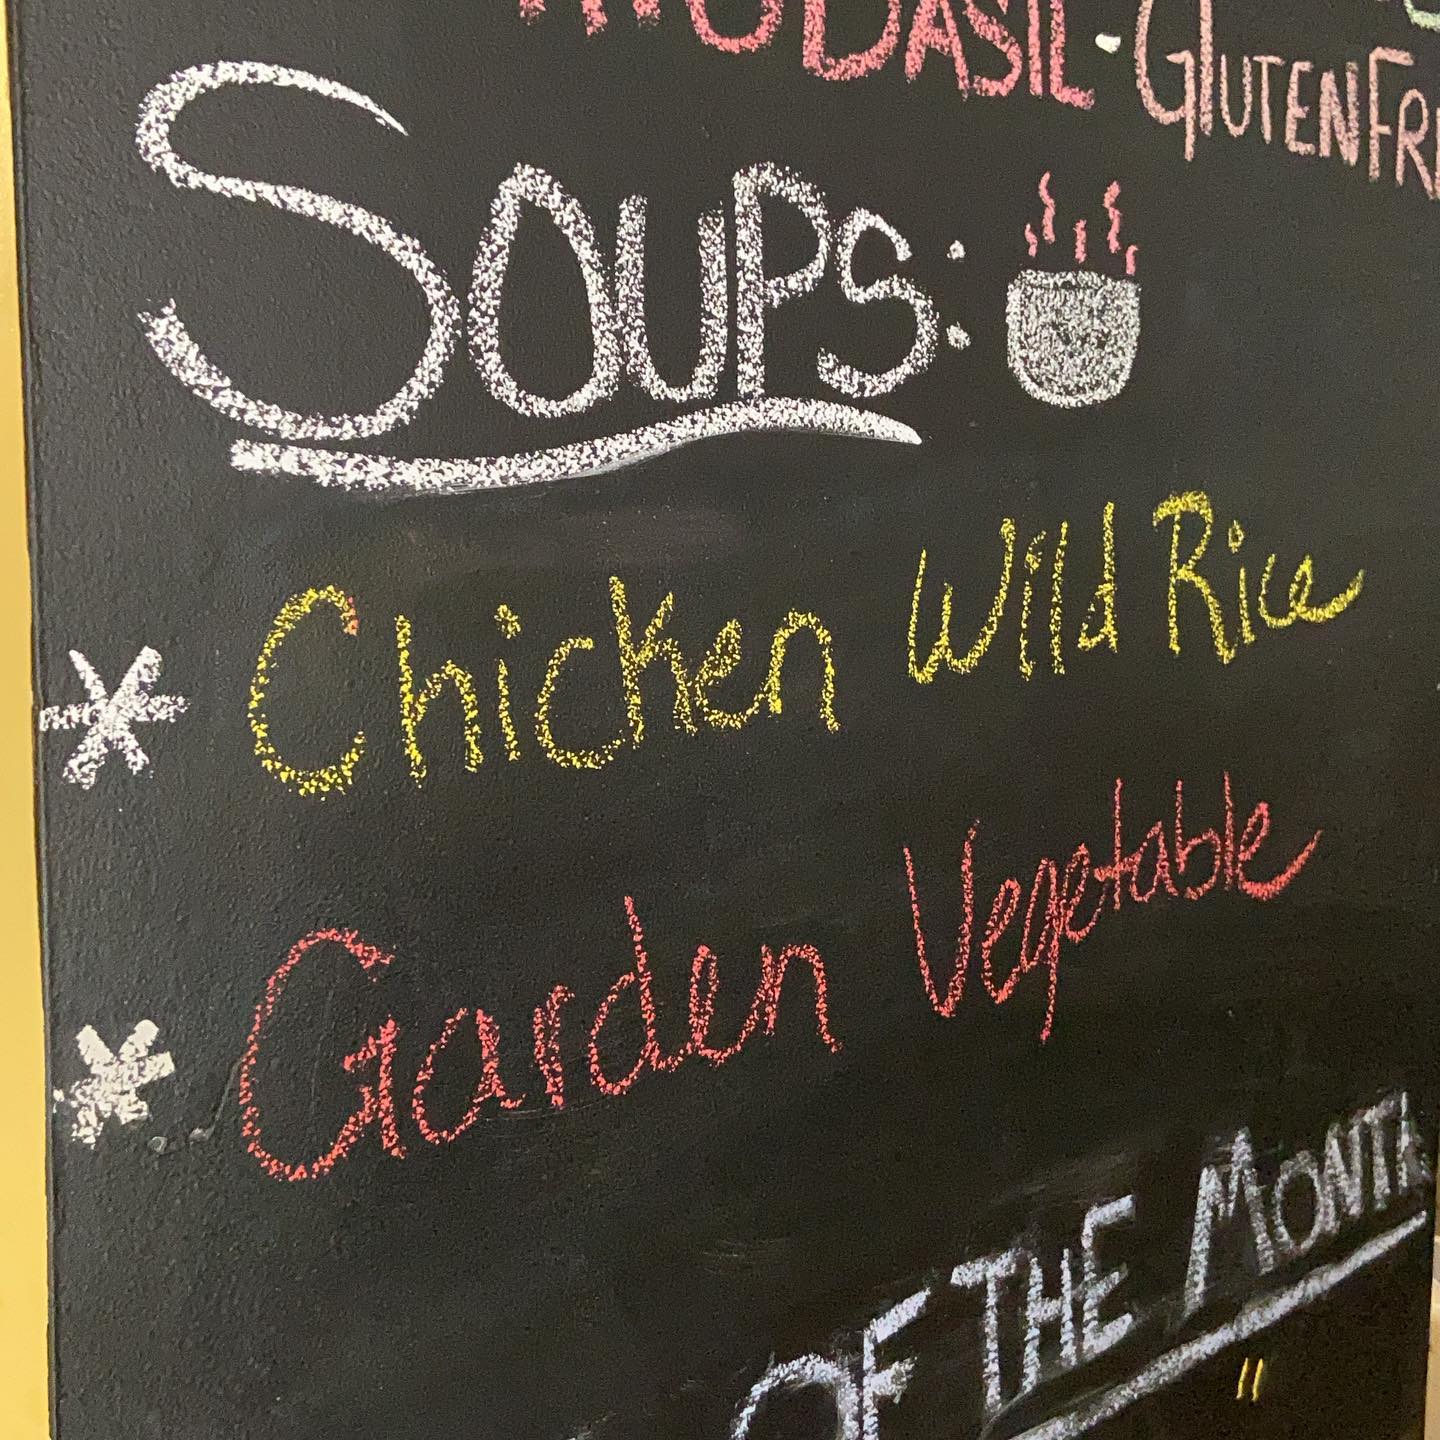 BASIL · GLUTEN FR
SOUPS:
* Chicken Wild Rice
* Garden Vegetable
OF THE MONTH
"